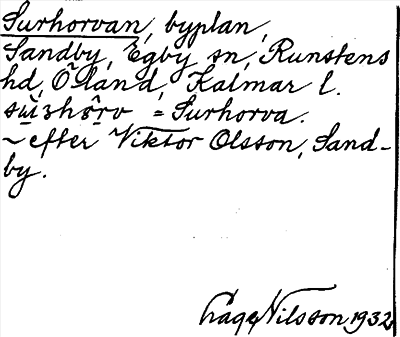 Surhorvan, byplan,
Sandby, Egby sn, Runstens
hd, Öland, Kalmar l.
= Surhorva.
~ efter Viktor Olsson, Sand-
by.
Åage Nilsson 1932